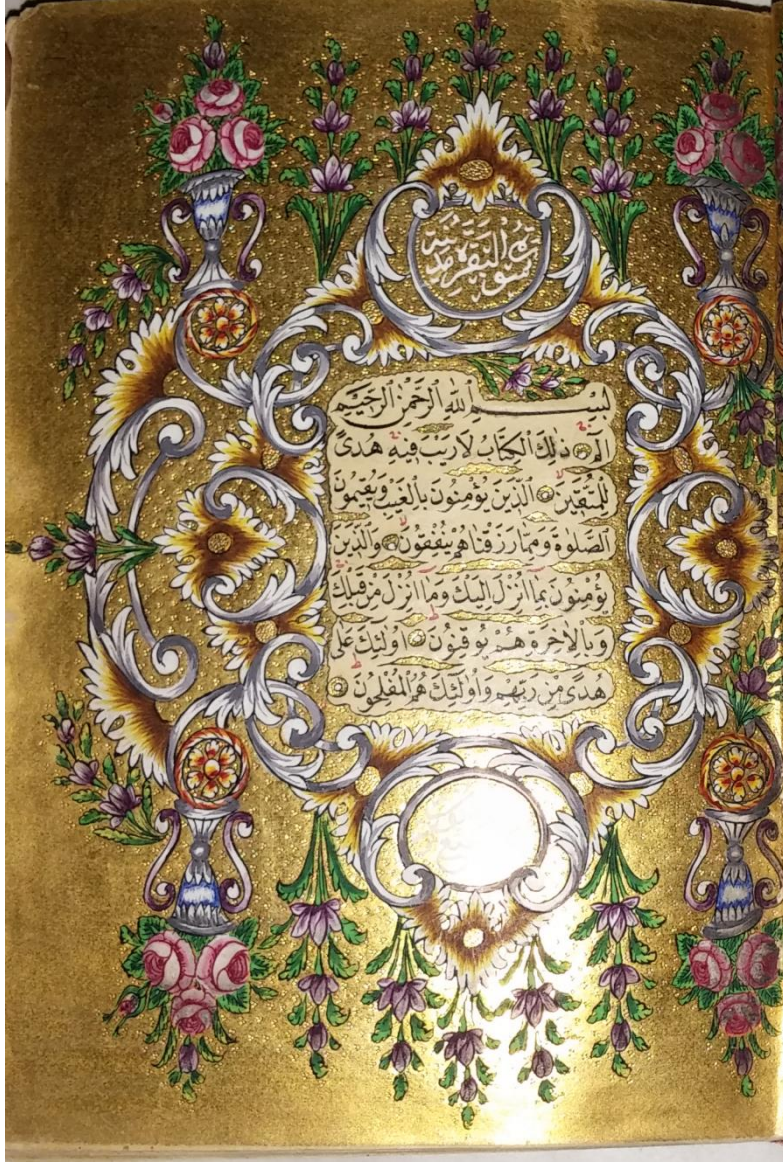 سورة البقرة مدنية
بسم الله الرحمن الرحيم
الٓمٓ ذٰلِكَ الْكِتَابُ لَا رَيْبَ فِيهِ هُدًى
لِلْمُتَّقِينَ الَّذِينَ يُؤْمِنُونَ بِالْغَيْبِ وَيُقِيمُونَ
الصَّلٰوةَ وَمِمَّا رَزَقْنَاهُمْ يُنْفِقُونَ وَالَّذِينَ
يُؤْمِنُونَ بِمَا اُنْزِلَ اِلَيْكَ وَمَا اُنْزِلَ مِنْ قَبْلِكَ
وَبِالْاٰخِرَةِ هُمْ يُوقِنُونَ اُولٰئِكَ عَلٰى
هُدًى مِنْ رَبِّهِمْ وَاُولٰئِكَ هُمُ الْمُفْلِحُونَ